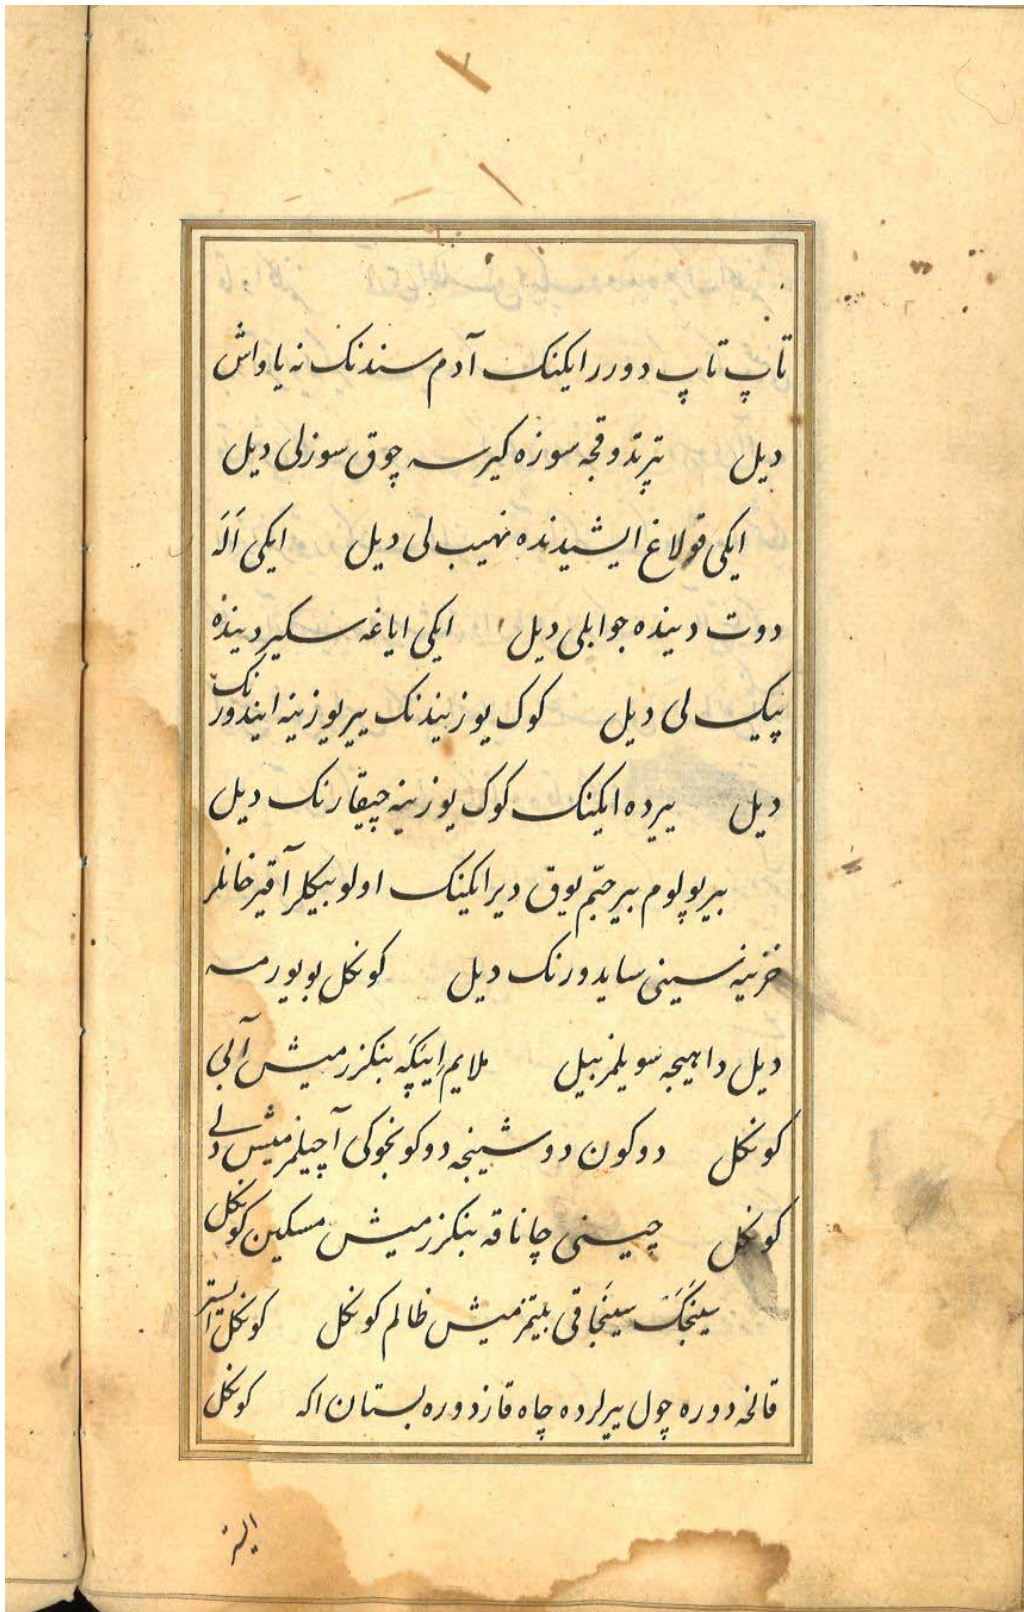 تاپ تاپ دورر ایکنک آدم سندنک نه یاواش
دیل تپرتدوقجه سوزه کیرسه چوق سوزلی دیل
ایکی قولاغ ایشیدنده نهیب لی دیل ایکی اَلَه
دوت دینده جوابلی دیل ایکی ایاغه سکیر دینده
پیک لی دیل کوک یوزیندنک ییر یوزینه ایندورنک
دیل ییرده ایکنک کوک یوزینه چیقارنک دیل
بیر پولوم بیر حبّم یوق دیر ایکنک اولو بیکلر آقیر خانلر
خزینه سینی سایدورنک دیل کونکل بویورمسه
دیل داهیجه سویلمز بیل ملایم اِیپَکَه بنکزرمیش آلی
کونکل دوکون دوشینجه دوکونجوکی آچیلمزمیش دلی
کونکل چینی چاناقه بنکزرمیش مسکین کونکل
سینجَک سینجَاقی بیتمزمیش ظالم کونکل کونکل ایستر
قالخه دوره چول ییرلرده چاه قازدوره بستان اکه کونکل